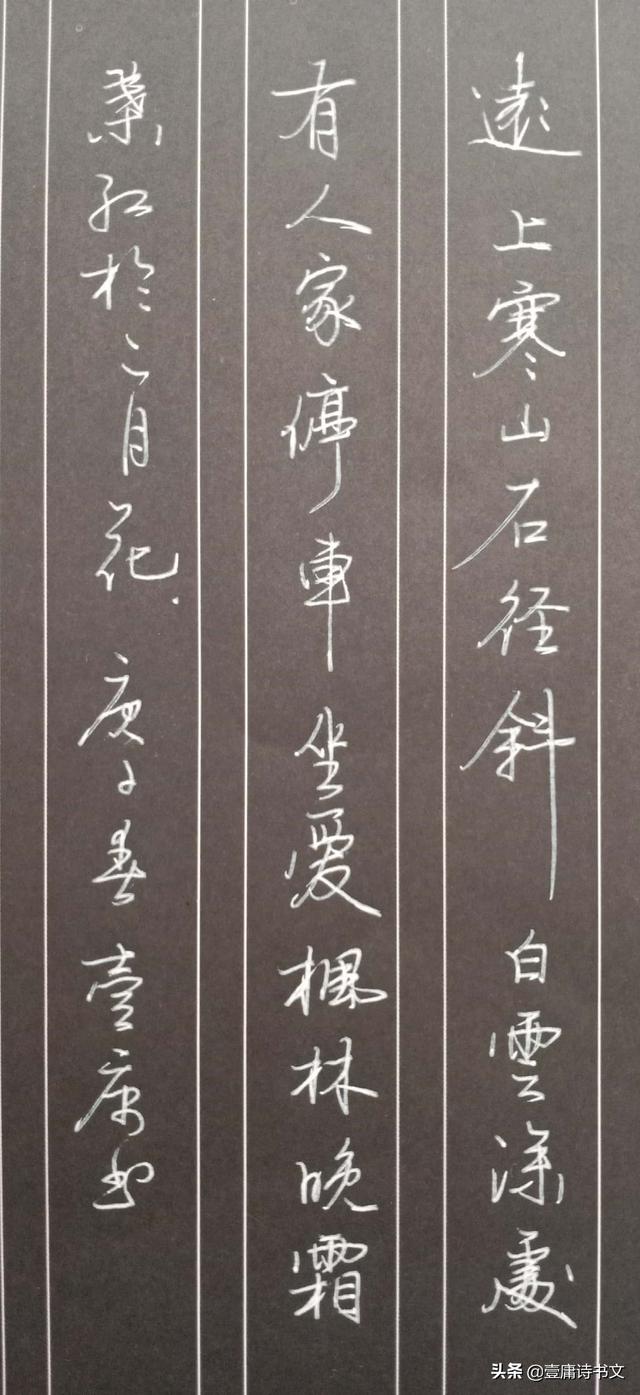 遠上寒山石径斜白雲深處
有人家停車坐愛楓林晚霜
葉紅於二月花庚子春壹庸书
头条@壹庸诗书文